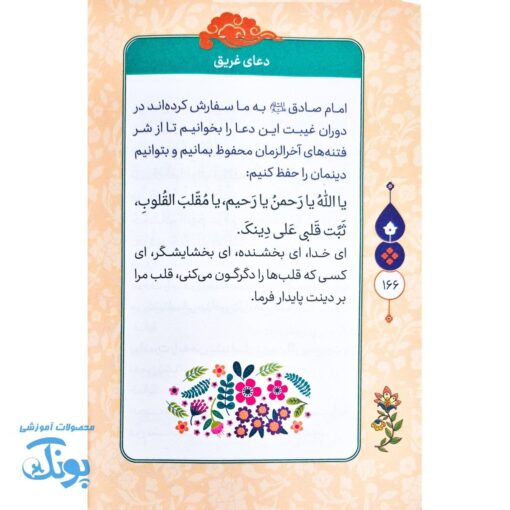 دعای غریق
امام صادق علیه‌السلام به ما سفارش کرده‌اند در
دوران غیبت این دعا را بخوانیم تا از شر
فتنه‌های آخرالزمان محفوظ بمانیم و بتوانیم
دینمان را حفظ کنیم:
یا اللهُ یا رَحمنُ یا رَحیم، یا مُقَلِّبَ القُلوبِ،
ثَبِّت قَلبی عَلی دِینکَ.
ای خدا، ای بخشنده، ای بخشایشگر، ای
کسی که قلب‌ها را دگرگون می‌کنی، قلب مرا
بر دینت پایدار فرما.
۱۶۶
محصولات آموزشی
پونک